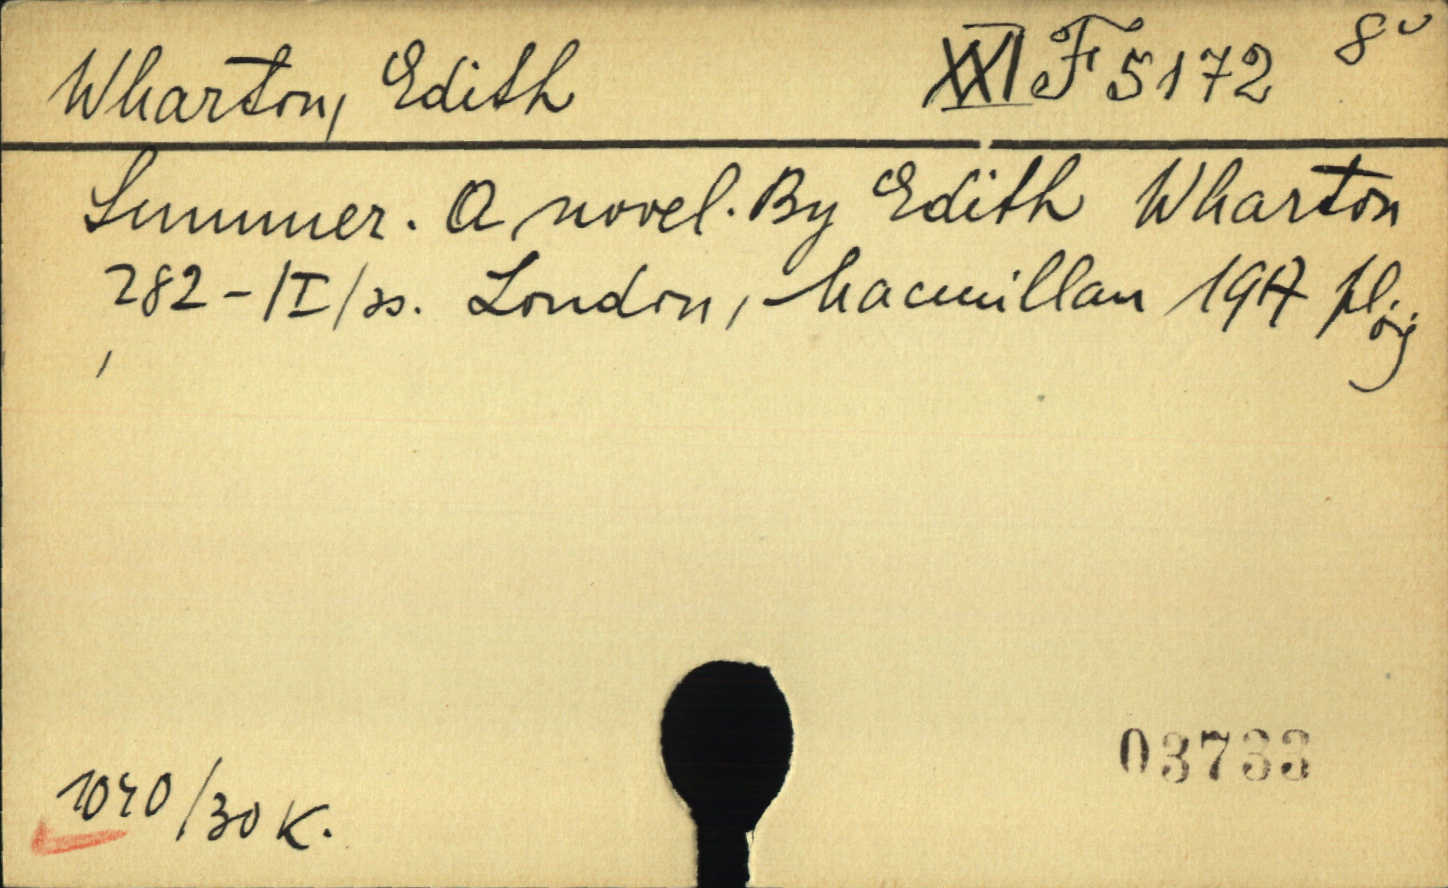 Wharton, Edith XXI F 5172 8°
Summer. A novel. By Edith Wharton
282 - /I/ss. London, Macmillan 1917 pl.
1040/30 K.
03733